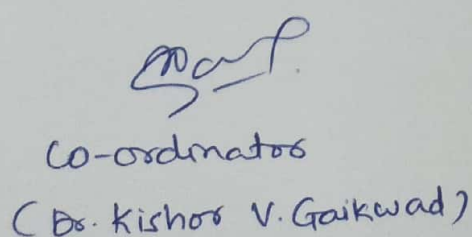 Co-ordinator
(Dr. Kishor V. Gaikwad)